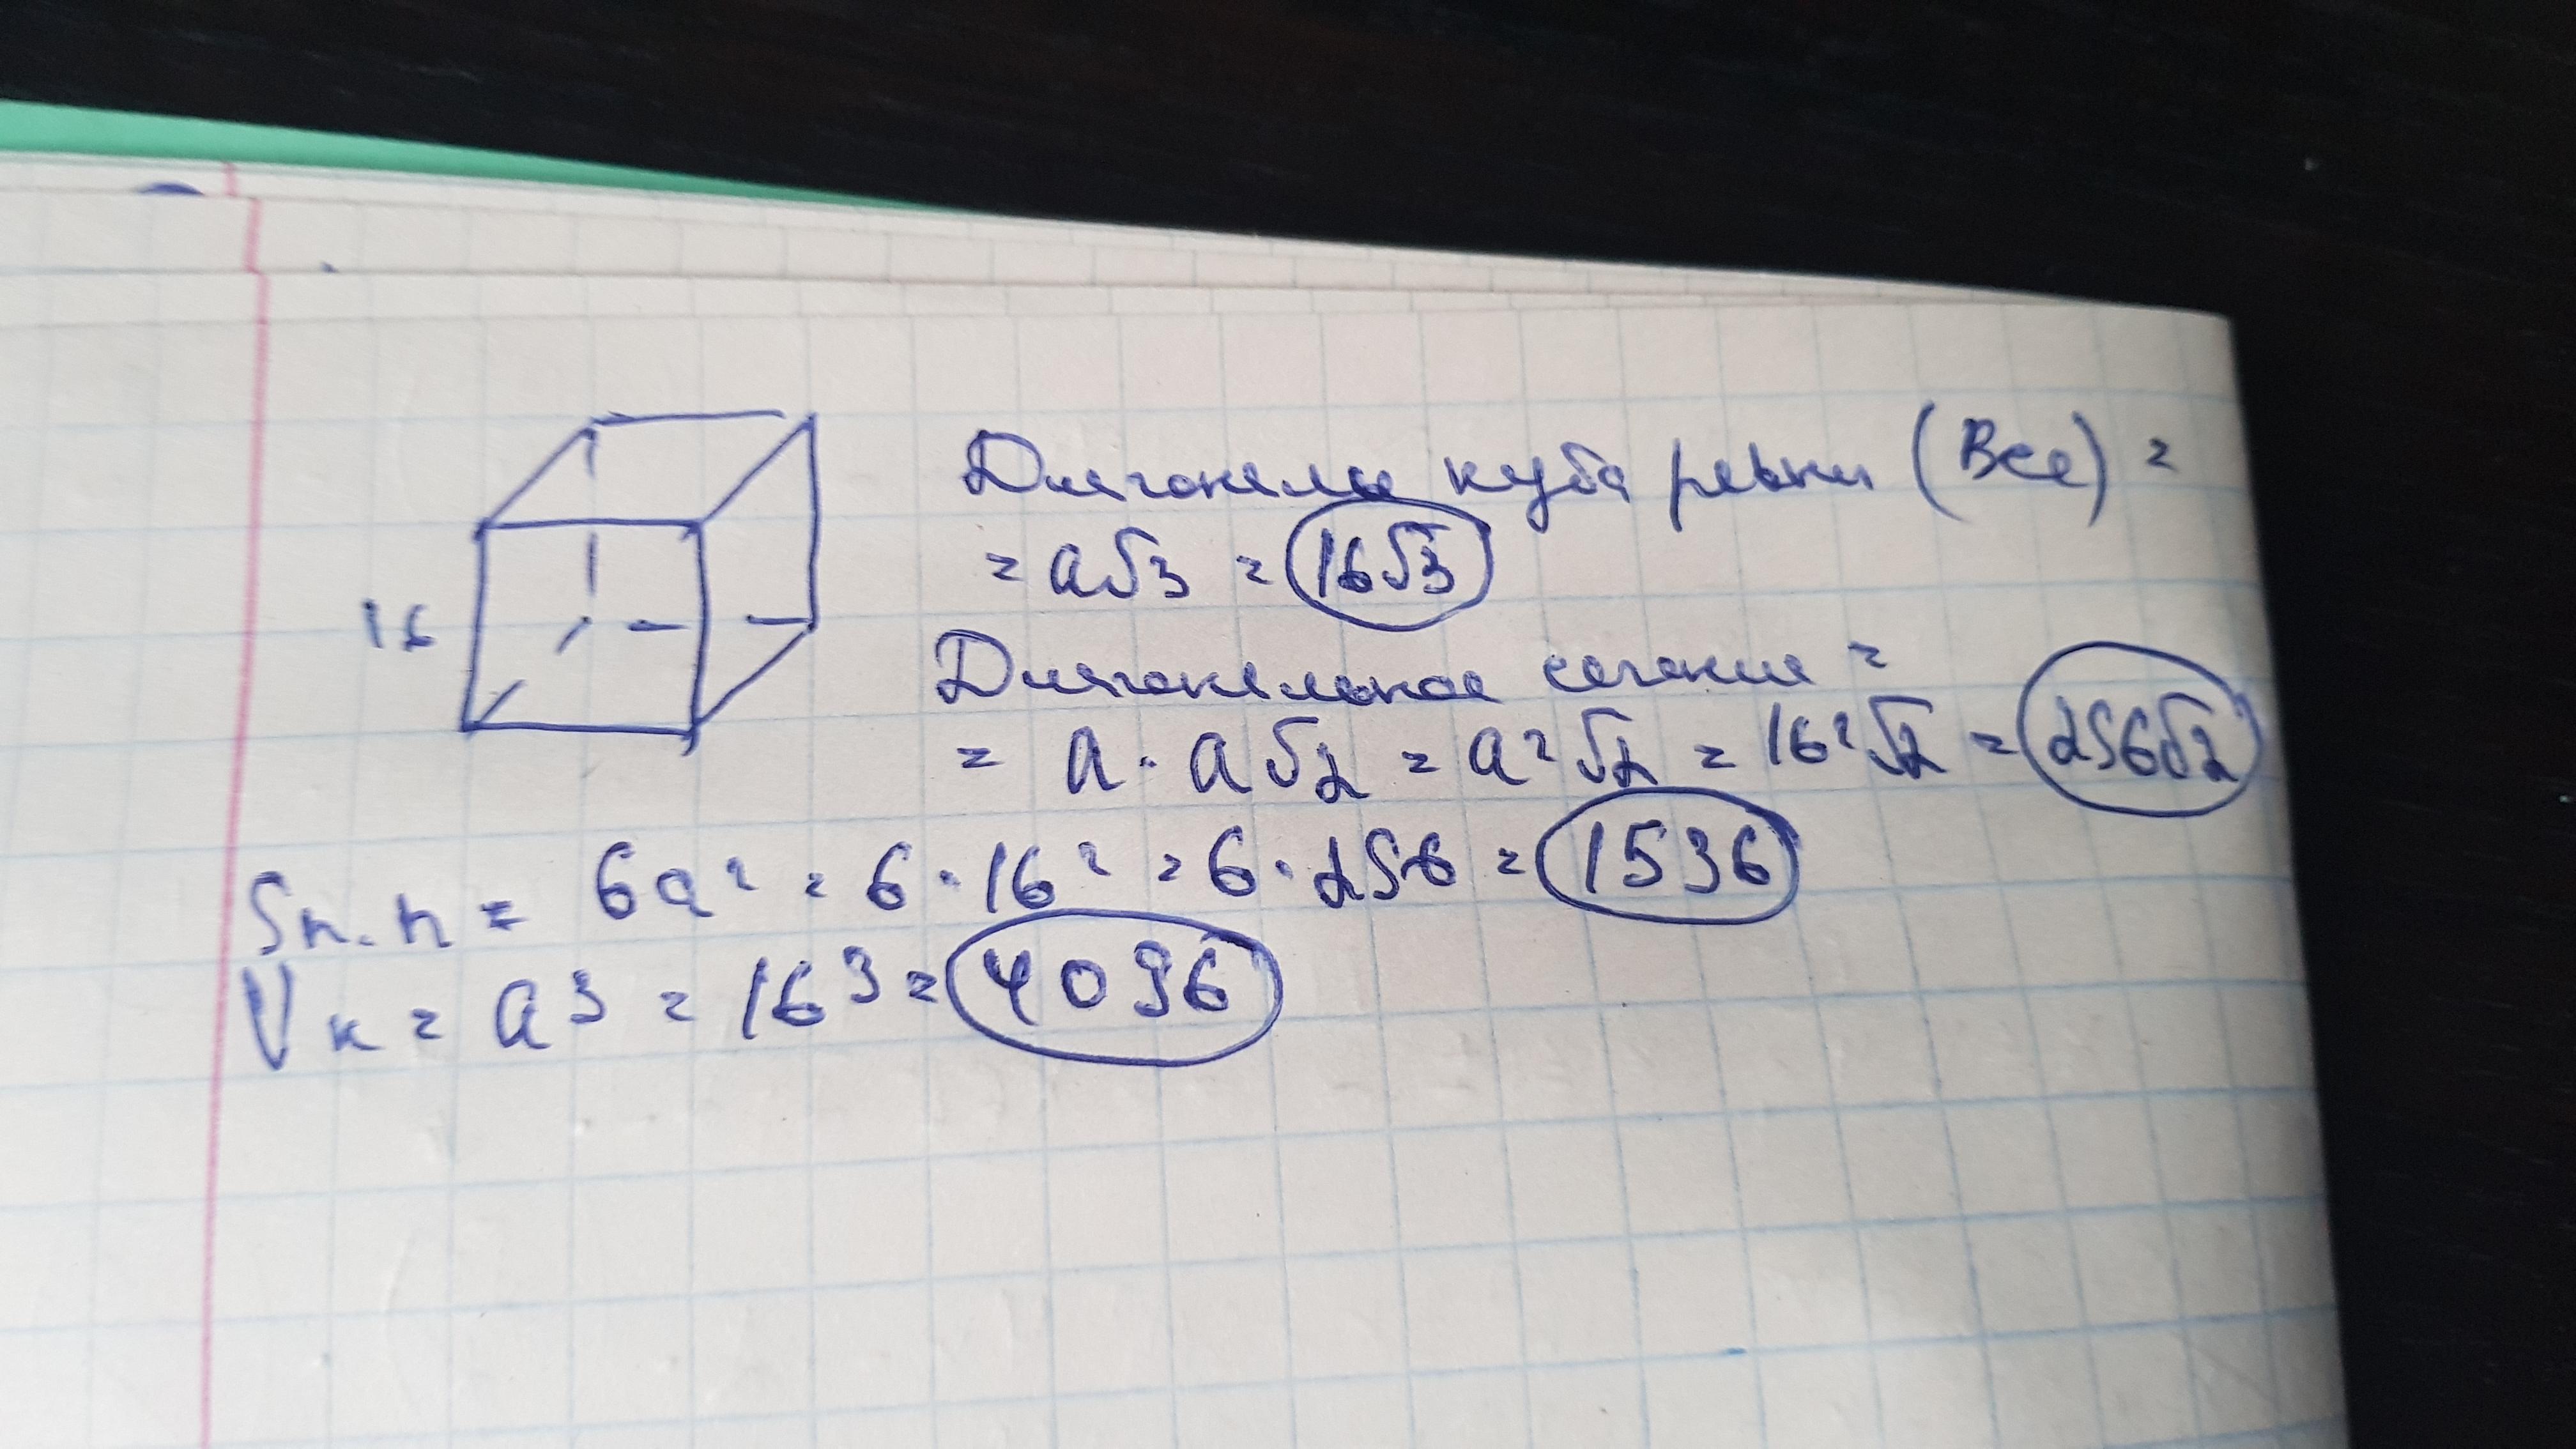 16
Диагонали куба равны (Все) =
= a√3 = 16√3
Диагональное сечение =
= a · a√2 = a²√2 = 16²√2 = 256√2
Sп.п = 6a² = 6 · 16² = 6 · 256 = 1536
Vк = a³ = 16³ = 4096